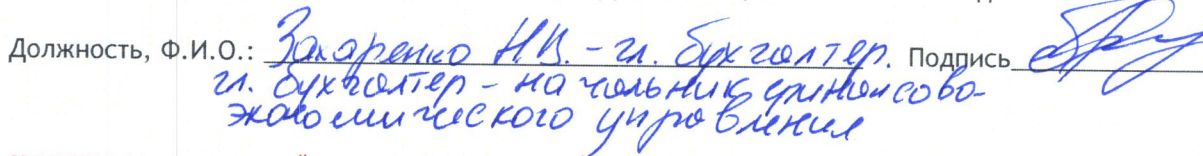 Должность, Ф.И.О.: Захаренко Н.В. - гл. бухгалтер. Подпись
гл. бухгалтер - начальник финансово-
экономического управления